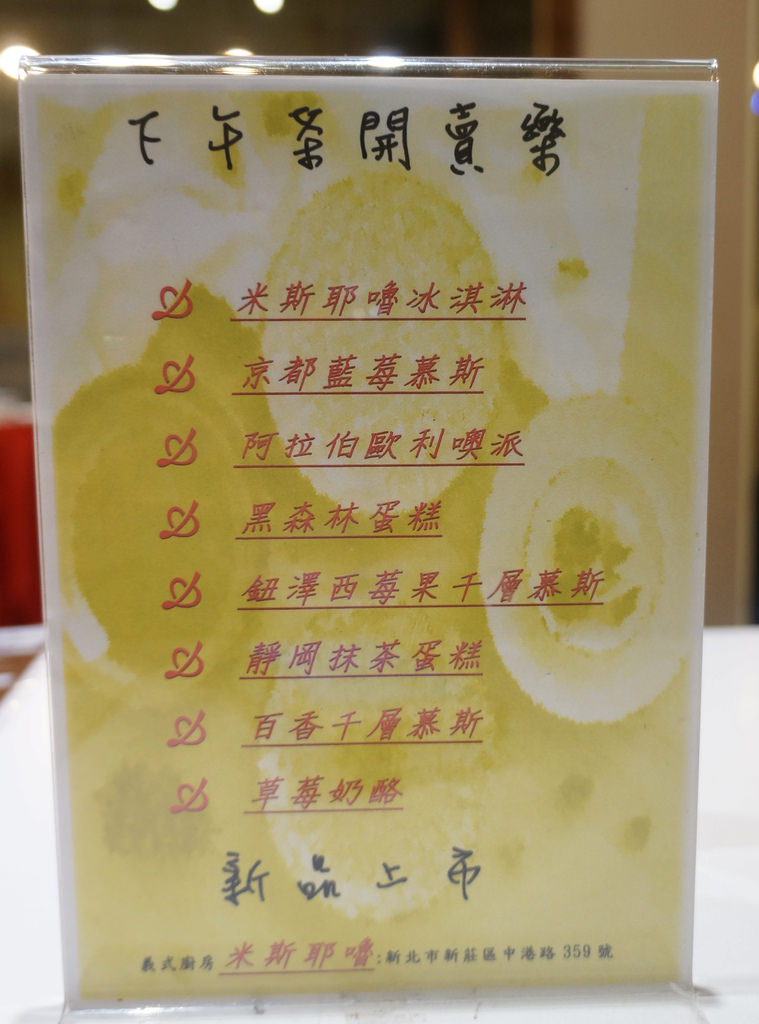 下午茶開賣樂
米斯耶嚕冰淇淋
京都藍莓慕斯
阿拉伯歐利噢派
黑森林蛋糕
鈕澤西莓果千層慕斯
靜岡抹茶蛋糕
百香千層慕斯
草莓奶酪
新品上市
義式廚房 米斯耶嚕:新北市新莊區中港路 359 號